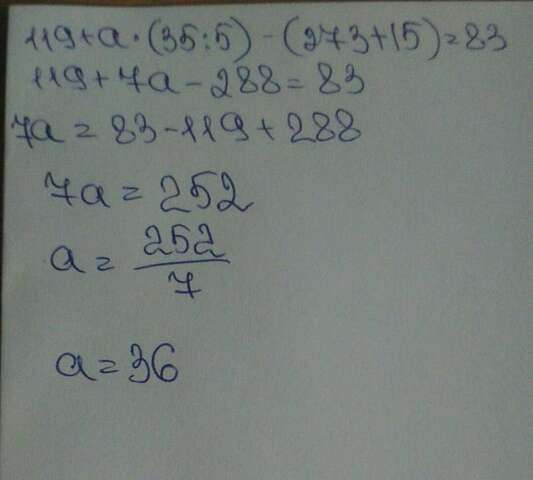 119+a·(35:5)-(273+15)=83
119+7a-288=83
7a=83-119+288
7a=252
a=252/7
a=36